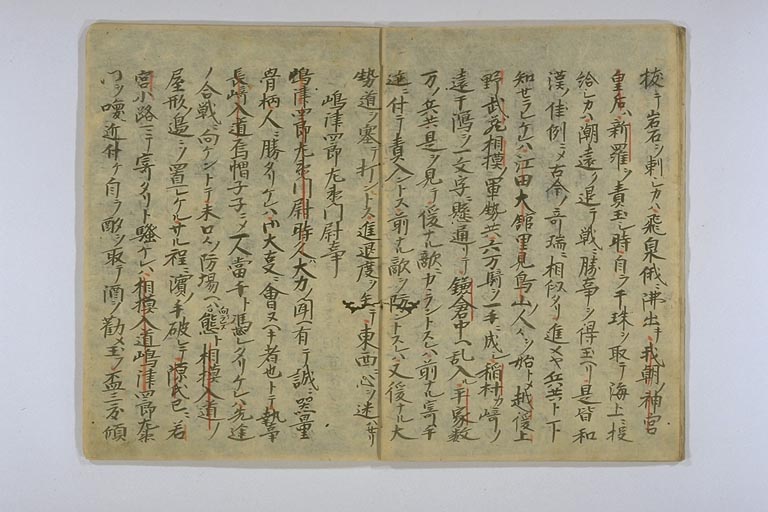 抜テ岩石ヲ刺レカハ飛泉俄ニ沸出キ我朝ノ神宮
皇后ハ新羅ヲ責玉シ時自ラ干珠ヲ取テ海上ニ投
給レカハ潮遠ク退テ戦ニ勝事ヲ得玉リ是皆和
漢ノ佳例ニメ古今ノ奇瑞ニ相似タリ進メヤ兵共ト下
知セラレケレハ江田大舘里見鳥山人々ヲ始トメ越後上
野武蔵相摸ノ軍勢共六万騎ヲ一手ニ成シ稲村カ崎ノ
遠干潟ヲ一文字ニ懸通リテ鎌倉中ヘ乱入ル平家数
万ノ兵共是ヲ見テ後ナル敵ニカヽラントスレハ前ナル寄手
迹ニ付テ責入トス前ナル敵ヲ防ントスレハ又後ナル大
勢道ヲ塞テ打ントス進退度ヲ失テ東西ニ心ヲ迷ハセリ
嶋津四郎左衛門尉事
嶋津四郎左衛門尉時久大力ノ聞ヘ有テ誠ニ器量
骨柄人ニ勝タリケレハ御大変ニ會又ヘキ者也トテ執事
長崎入道烏帽子子ニメ一人當千ト馮レタリケレハ先途
ノ合戦ニ向ケントテ未口々ノ防場ヘハ不向シテ態ト相摸入道ノ
屋形邉ニソ置レケルサル程ニ濱ノ手破レテ源氏已ニ若
宮小路ニテ寄タリト騒ケレハ相摸入道嶋津四郎左衛
門ヲ喚近付ケ自ラ酌ヲ取テ酒ヲ勸メ玉フ盃三度傾